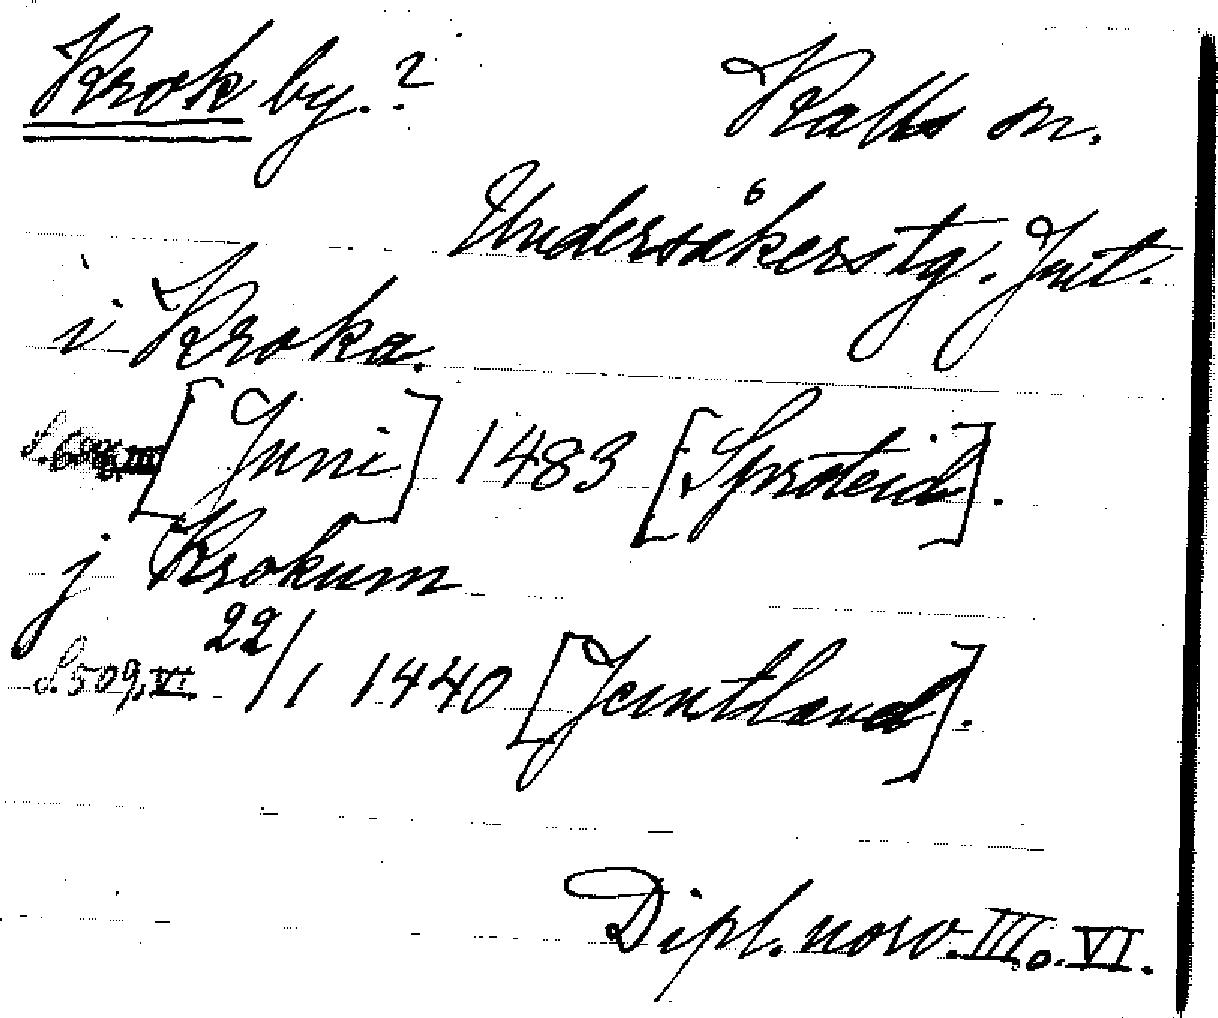 Krok by.? Kalls sn.
Undersåkers tg. Jmt.
i Kroka.
[Juni] 1483 [Sproteid].
j Krokum
S. 509, VI. 22/1 1440 [Jemtland].
Dipl. norv. III o. VI.